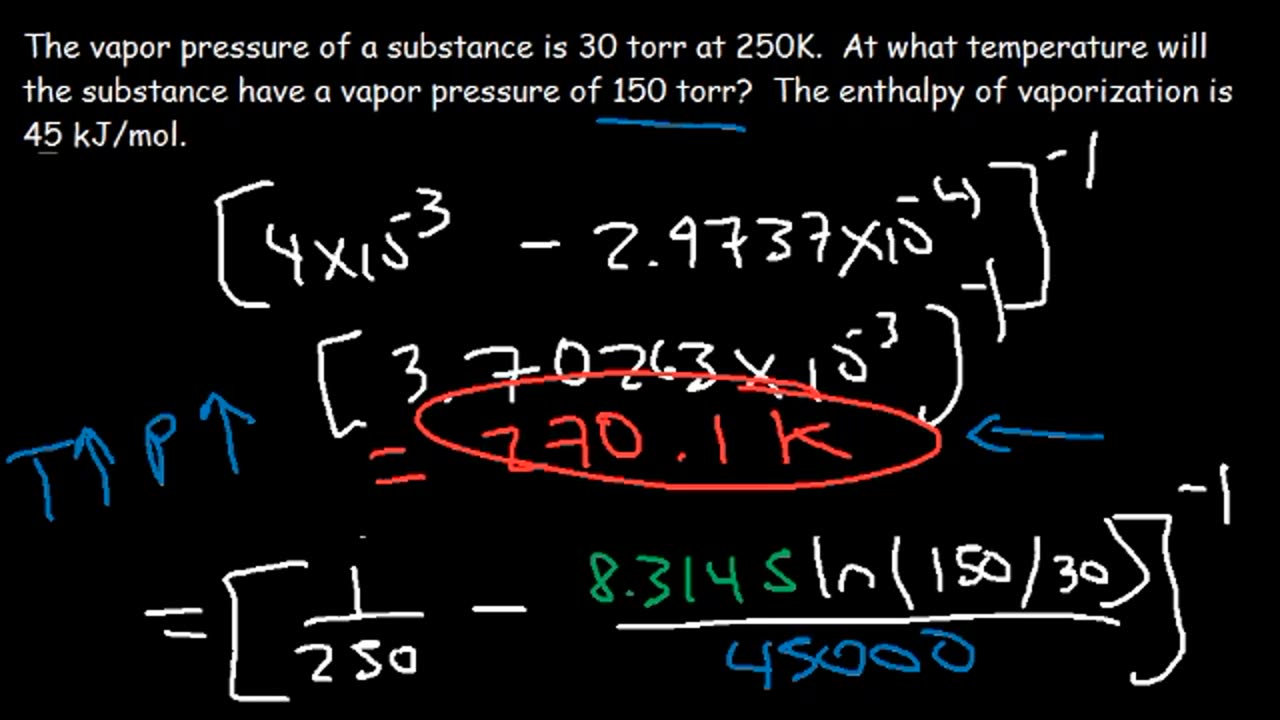 The vapor pressure of a substance is 30 torr at 250K. At what temperature will
the substance have a vapor pressure of 150 torr? The enthalpy of vaporization is
45 kJ/mol.
[4x10⁻³ - 2.9737x10⁻⁴]⁻¹
[3.70263x10⁻³]⁻¹
T↑ P↑
= 270.1 K ←
= [1/250 - 8.3145 ln(150/30)/45000]⁻¹